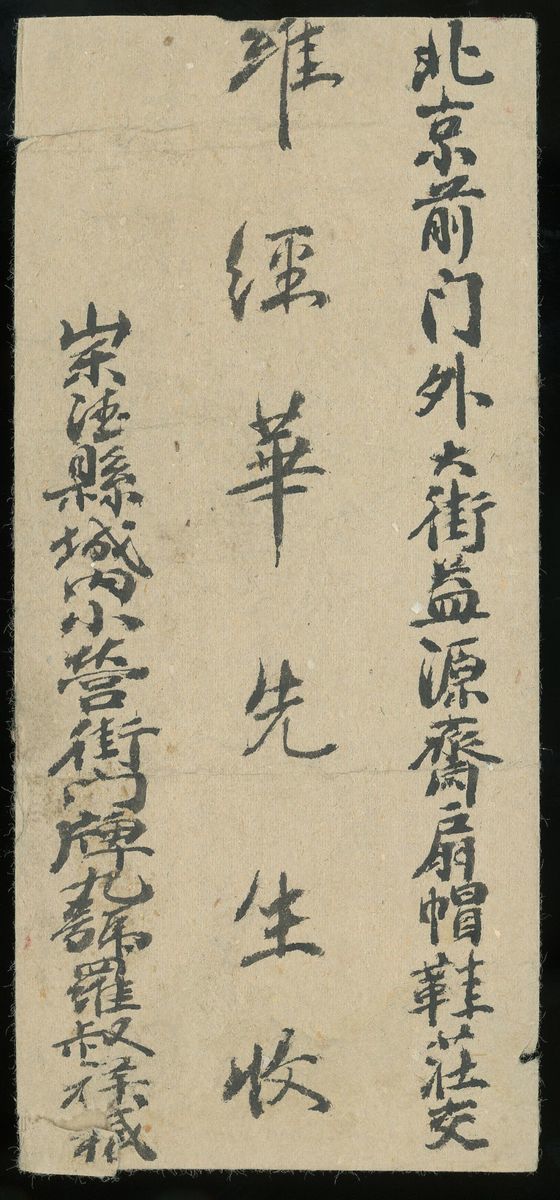 北京前门外大街益源齋扇帽鞋莊交
維經華先生收
崇德縣城内小營街門牌九號羅叔葆緘